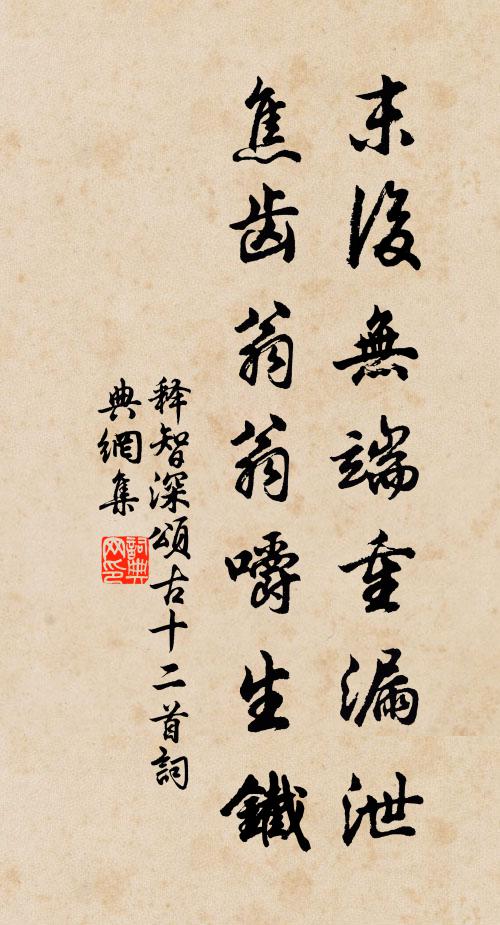 末後無端重漏泄
焦齿翁翁嚼生鐵
释智深頌古十二首詞
典網集
詞典网印